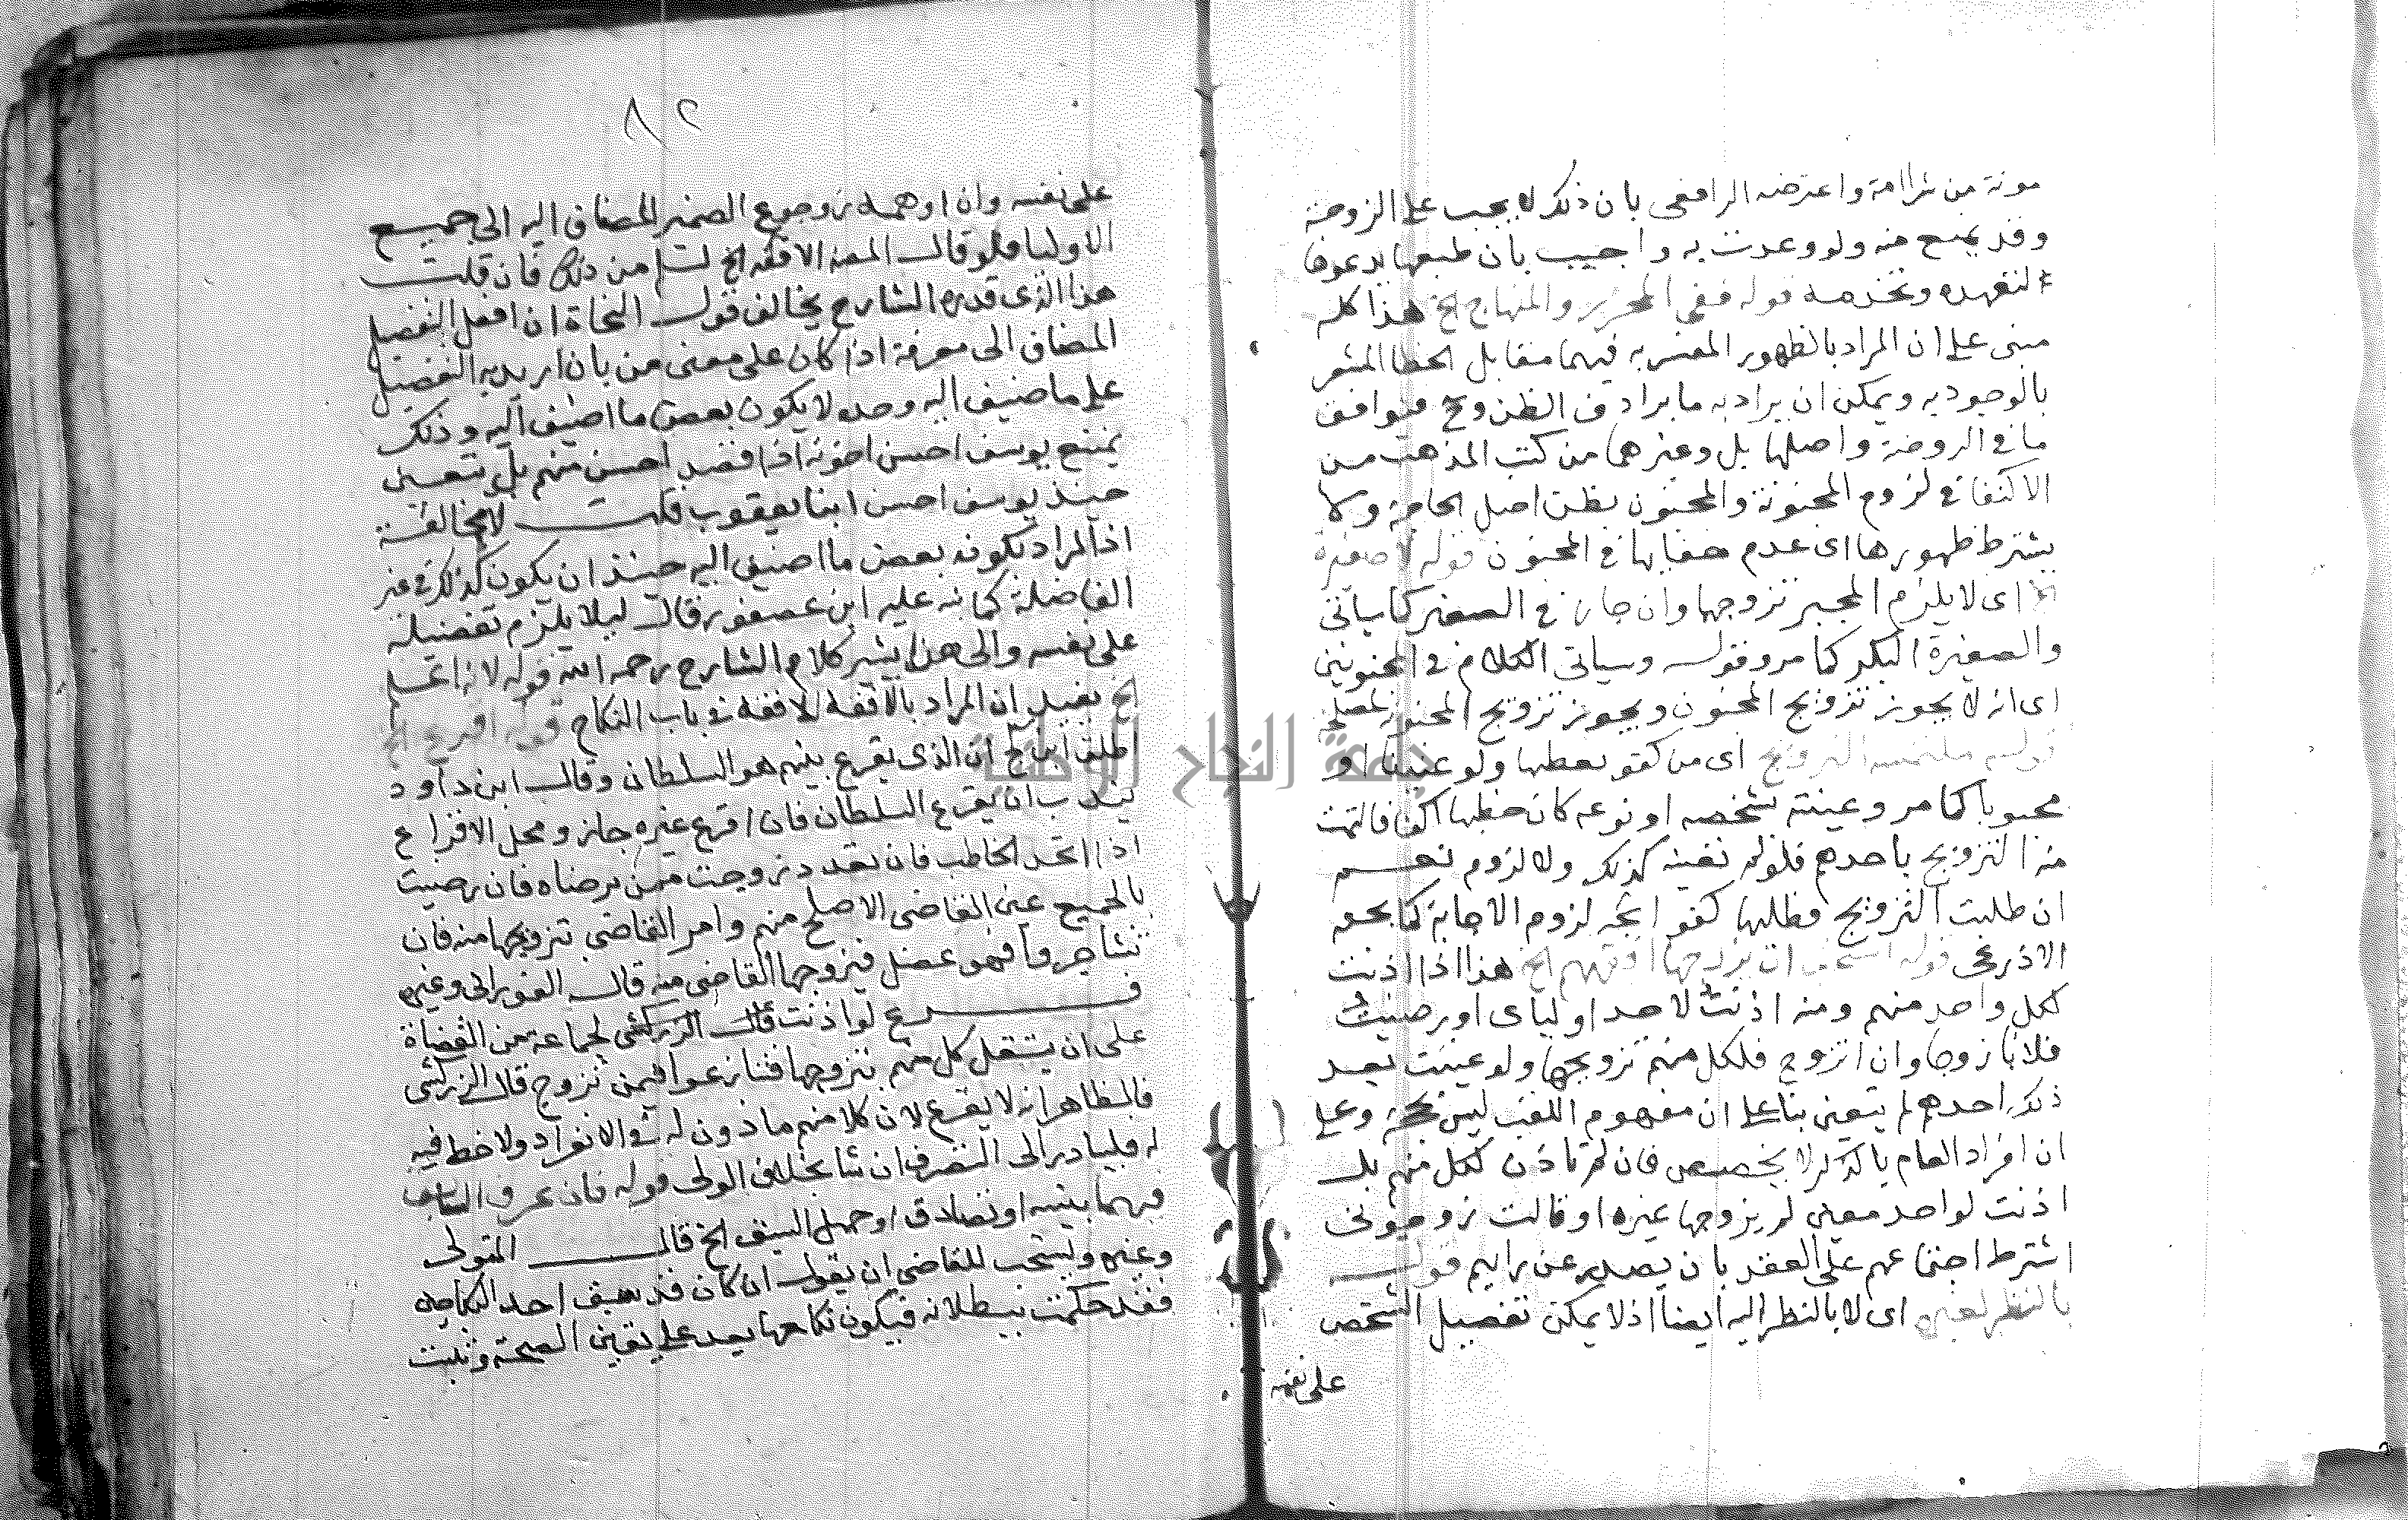 مونة من شرا امة واعترضه الرافعى بان ذلك لا يجب على الزوجة
وقد يمنع منه ولو وعدت به واجيب بان طبعها يدعوها
لتعهده وتخدمه قوله ففى المحرر والمنهاج الخ هذا كله
مبنى على ان المراد بالظهور المعبر به فيهما مقابل الخفا المشعر
بالوجود به ويمكن ان يراد به ما يرادف الظن وح فيوافق
ما فى الروضة واصلها بل وغيرهما من كتب المذهب من
الاكتفا فى لزوم المجنونة والمجنون بظن اصل الحاجة ولا
يشترط ظهورها اى عدم خفايها فى المجنون قوله لا صغيرة
الخ اى لا يلزم المجبر تزوجها وان جاز فى الصغير كما ياتى
والصغيرة البكر كما مر وقوله وسياتى الكلام فى المجنونين
اى انه لا يجوز تزويج المجنون ويجوز تزويج المجنونة لمصلحة
قوله ملتمسه التزويج اى من كفو بعطها ولو عنينا او
مجبوبا كما مر وعينته بشخصه او نوعه كان خطبها اكفا فالتمست
منه التزويج باحدهم فلو لم تعينه كذلك ولا لزوم نعم
ان طلبت التزويج وطلبها كفو اتجه لزوم الاجابة كما بحثه
الاذرعى قوله استحب ان يزوجها افقههم الخ هذا اذا اذنت
لكل واحد منهم ومنه اذنت لاحد اوليا اى او رضيت
فلانا زوجا وان اتزوج فلكل منهم تزويجها ولو عينت بعد
ذلك احدهم لم يتعين بنا على ان مفهوم اللقب ليس بحجة وعلى
ان افراد العام بالذكر لا يخصص فان لم تاذن لكل منهم بل
اذنت لواحد معين لم يزوجها غيره او قالت زوجونى
اشترط اجتماعهم على العقد بان يصدر عن رايهم قوله
بالنظر لغيره اى لا بالنظر اليه ايضا اذ لا يمكن تفضيل الشخص
على نفسه
٨٢
على نفسه وان اوهمه رجوع الضمير المضاف اليه الى جميع
الاوليا فلو قال المصنف الافقه الخ لسلم من ذلك فان قلت
هذا الذى قدره الشارح يخالف قول النحاة ان افعل التفضيل
المضاف الى معرفة اذا كان على معنى من بان اريد به التفضيل
على ما ضيف اليه وحده لا يكون بعض ما اضيف اليه وذلك
يمتنع يوسف احسن اخوته اذا قصد احسن منهم بل يتعين
حينذ يوسف احسن ابنا يعقوب قلت لا مخالفة
اذ المراد بكونه بعض ما اضيف اليه حينذ ان يكون كذلك فى غير
الفاضلة كما نبه عليه ابن عصفور قال ليلا يلزم تفضيله
على نفسه والى هذا يشير كلام الشارح رحمه الله قوله لانه اعلم
الخ يفيد ان المراد بالافقه الافقه فى باب النكاح قوله اقرع الخ
اطلق ابن كج ان الذى يقرع بينهم هو السلطان وقال ابن داود
يندب ان يقرع السلطان فان اقرع غيره جاز ومحل الاقراع
اذا اتحد الخاطب فان تعدد زوجت ممن ترضاه فان رضيت
بالجميع عين القاضى الاصلح منهم وامر القاضى تزويجها منه فان
تشاجروا فهو عضل فيزوجها القاضى منه قال الفورانى وغيره
فرع لو اذنت قال الزركشى لجماعة من القضاة
على ان يستقل كل منهم بتزوجها فتنازعوا فيمن تزوج قال الزركشى
فالظاهر انه لا يقرع لان كلا منهم ماذون له فى الانفراد ولا حظ فيه
له فليبادر الى التصرف ان شا بخلاف الولى قوله فان عرف السابق
فيهما ببينة او تصادق او جهل السبق الخ قال المتولى
وغيره ويستحب للقاضى ان يقول ان كان قد سبق احد النكاحين
فقد حكمت ببطلانه فيكون نكاحها بعد على يقين الصحة وتثبت